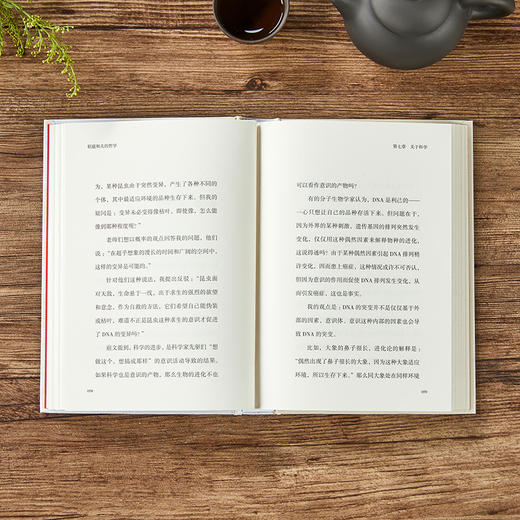 稻盛和夫的哲学
为，某种昆虫由于突然变异，产生了各种不同的
个体，其中最适应环境的品种生存下来。但我的
疑问是：变异未必变得像枯叶，即使像，怎么能
像到那种程度呢？
老师们想以概率的观点回答我的问题，他们
说：“在超乎想象的漫长的时间和广阔的空间中，
这样的变异是可能的。”
针对他们这种说法，我提出反驳：“昆虫面
对天敌，生命悬于一线，出于求生的强烈的欲望
和意念，作为自救的方法，它们希望自己能伪装
成枯叶，难道不正是昆虫这种求生的意识才促进
了 DNA 的变异吗？”
前文叙到，科学的进步，是科学家先驱们“想
做这个、想搞成那样”的意识活动导致的结果。
如果科学也是意识的产物，那么生物的进化不也
058
第七章 关于科学
可以看作意识的产物吗？
有的分子生物学家认为，DNA 是利己的——
一心只想让自己的品种存活下来。但问题在于，
因为外界的某种刺激，遗传基因的排列突然发生
变化，仅仅用这种偶然因素来解释物种的进化，
这说得通吗？由于某种偶然因素引起 DNA 排列稍
许变化，因而患上癌症，这种情况或许不可否认，
但因为意识的作用而使得 DNA 排列发生变化，从
而引发癌症，这也是事实。
我的观点是：DNA 的突变并不是仅仅基于外
部的因素，意识体、意识这种内部的因素也会导
致 DNA 的突变。
比如，大象的鼻子很长，进化论的解释是：
“偶然出现了鼻子很长的大象，因为这种大象适应
环境，所以生存下来。”那么同大象处在同样环境
059